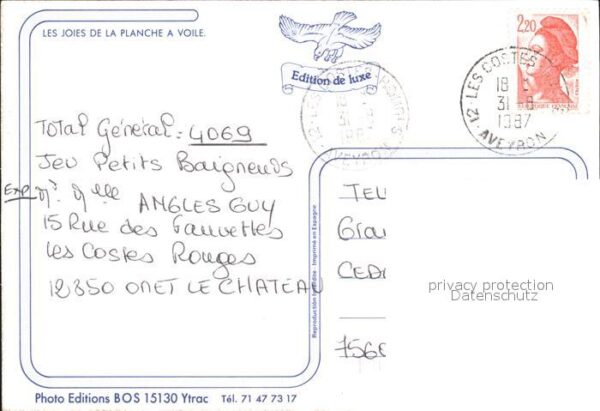 LES JOIES DE LA PLANCHE A VOILE.
Edition de luxe
2,20
12-LES COSTES
18
31-8
1987
AVEYRON
Total Général: 4069
Jeu Petits Baigneurs
Exp M. Mlle ANGLES GUY
15 Rue des Fauvettes
Les Costes Rouges
12850 ONET LE CHATEAU
Reproduction Interdite - Imprimé en Espagne
TEL
Gra
CED
privacy protection
Datenschutz
756
Photo Editions BOS 15130 Ytrac Tél. 71 47 73 17